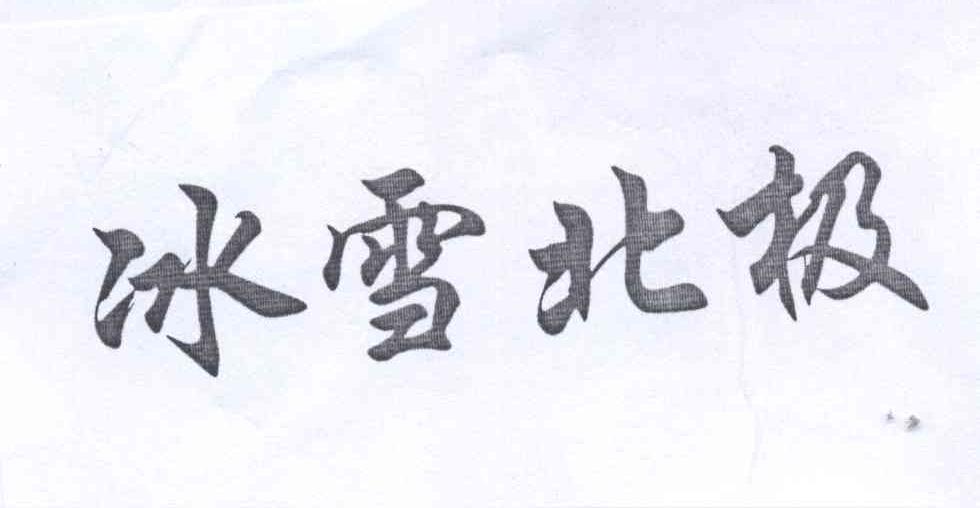 冰雪北极